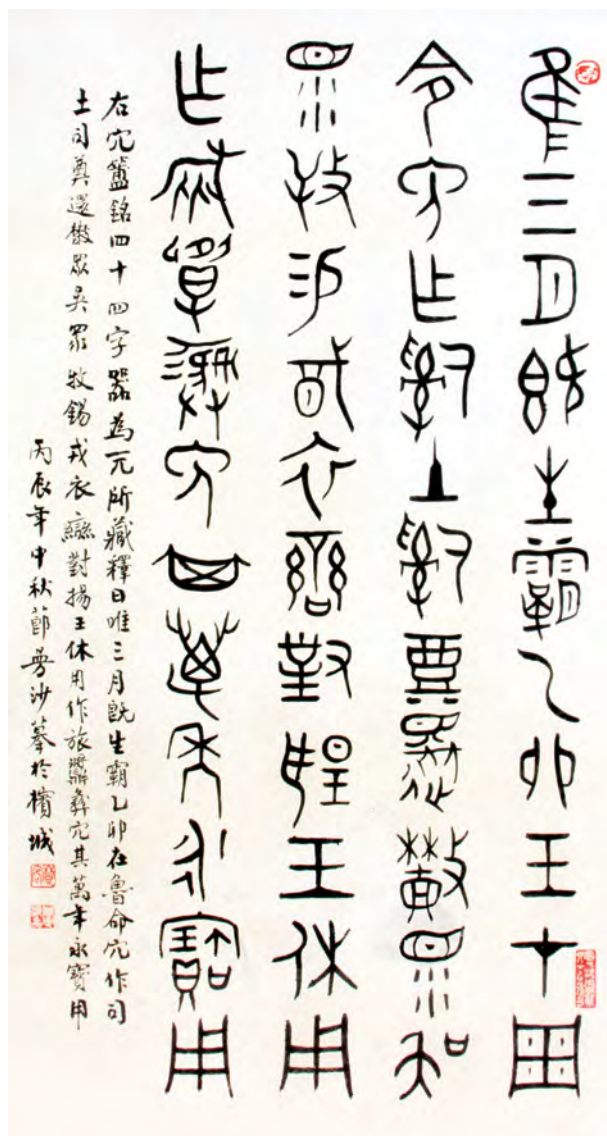 隹三月既生霸乙卯王才周
令免乍𤔲土𤔲奠還㪔眔吳
眔牧易戠衣䜌對揚王休用
乍旅𩰫彝免其萬年永寶用
右宂簠銘四十四字器為元所藏釋曰唯三月既生霸乙卯在魯命宂作司
土司奠還散眾吳眾牧錫戎衣鑾對揚王休用作旅𩰫彝宂其萬年永寶用
丙辰年中秋節曼沙摹於檳城